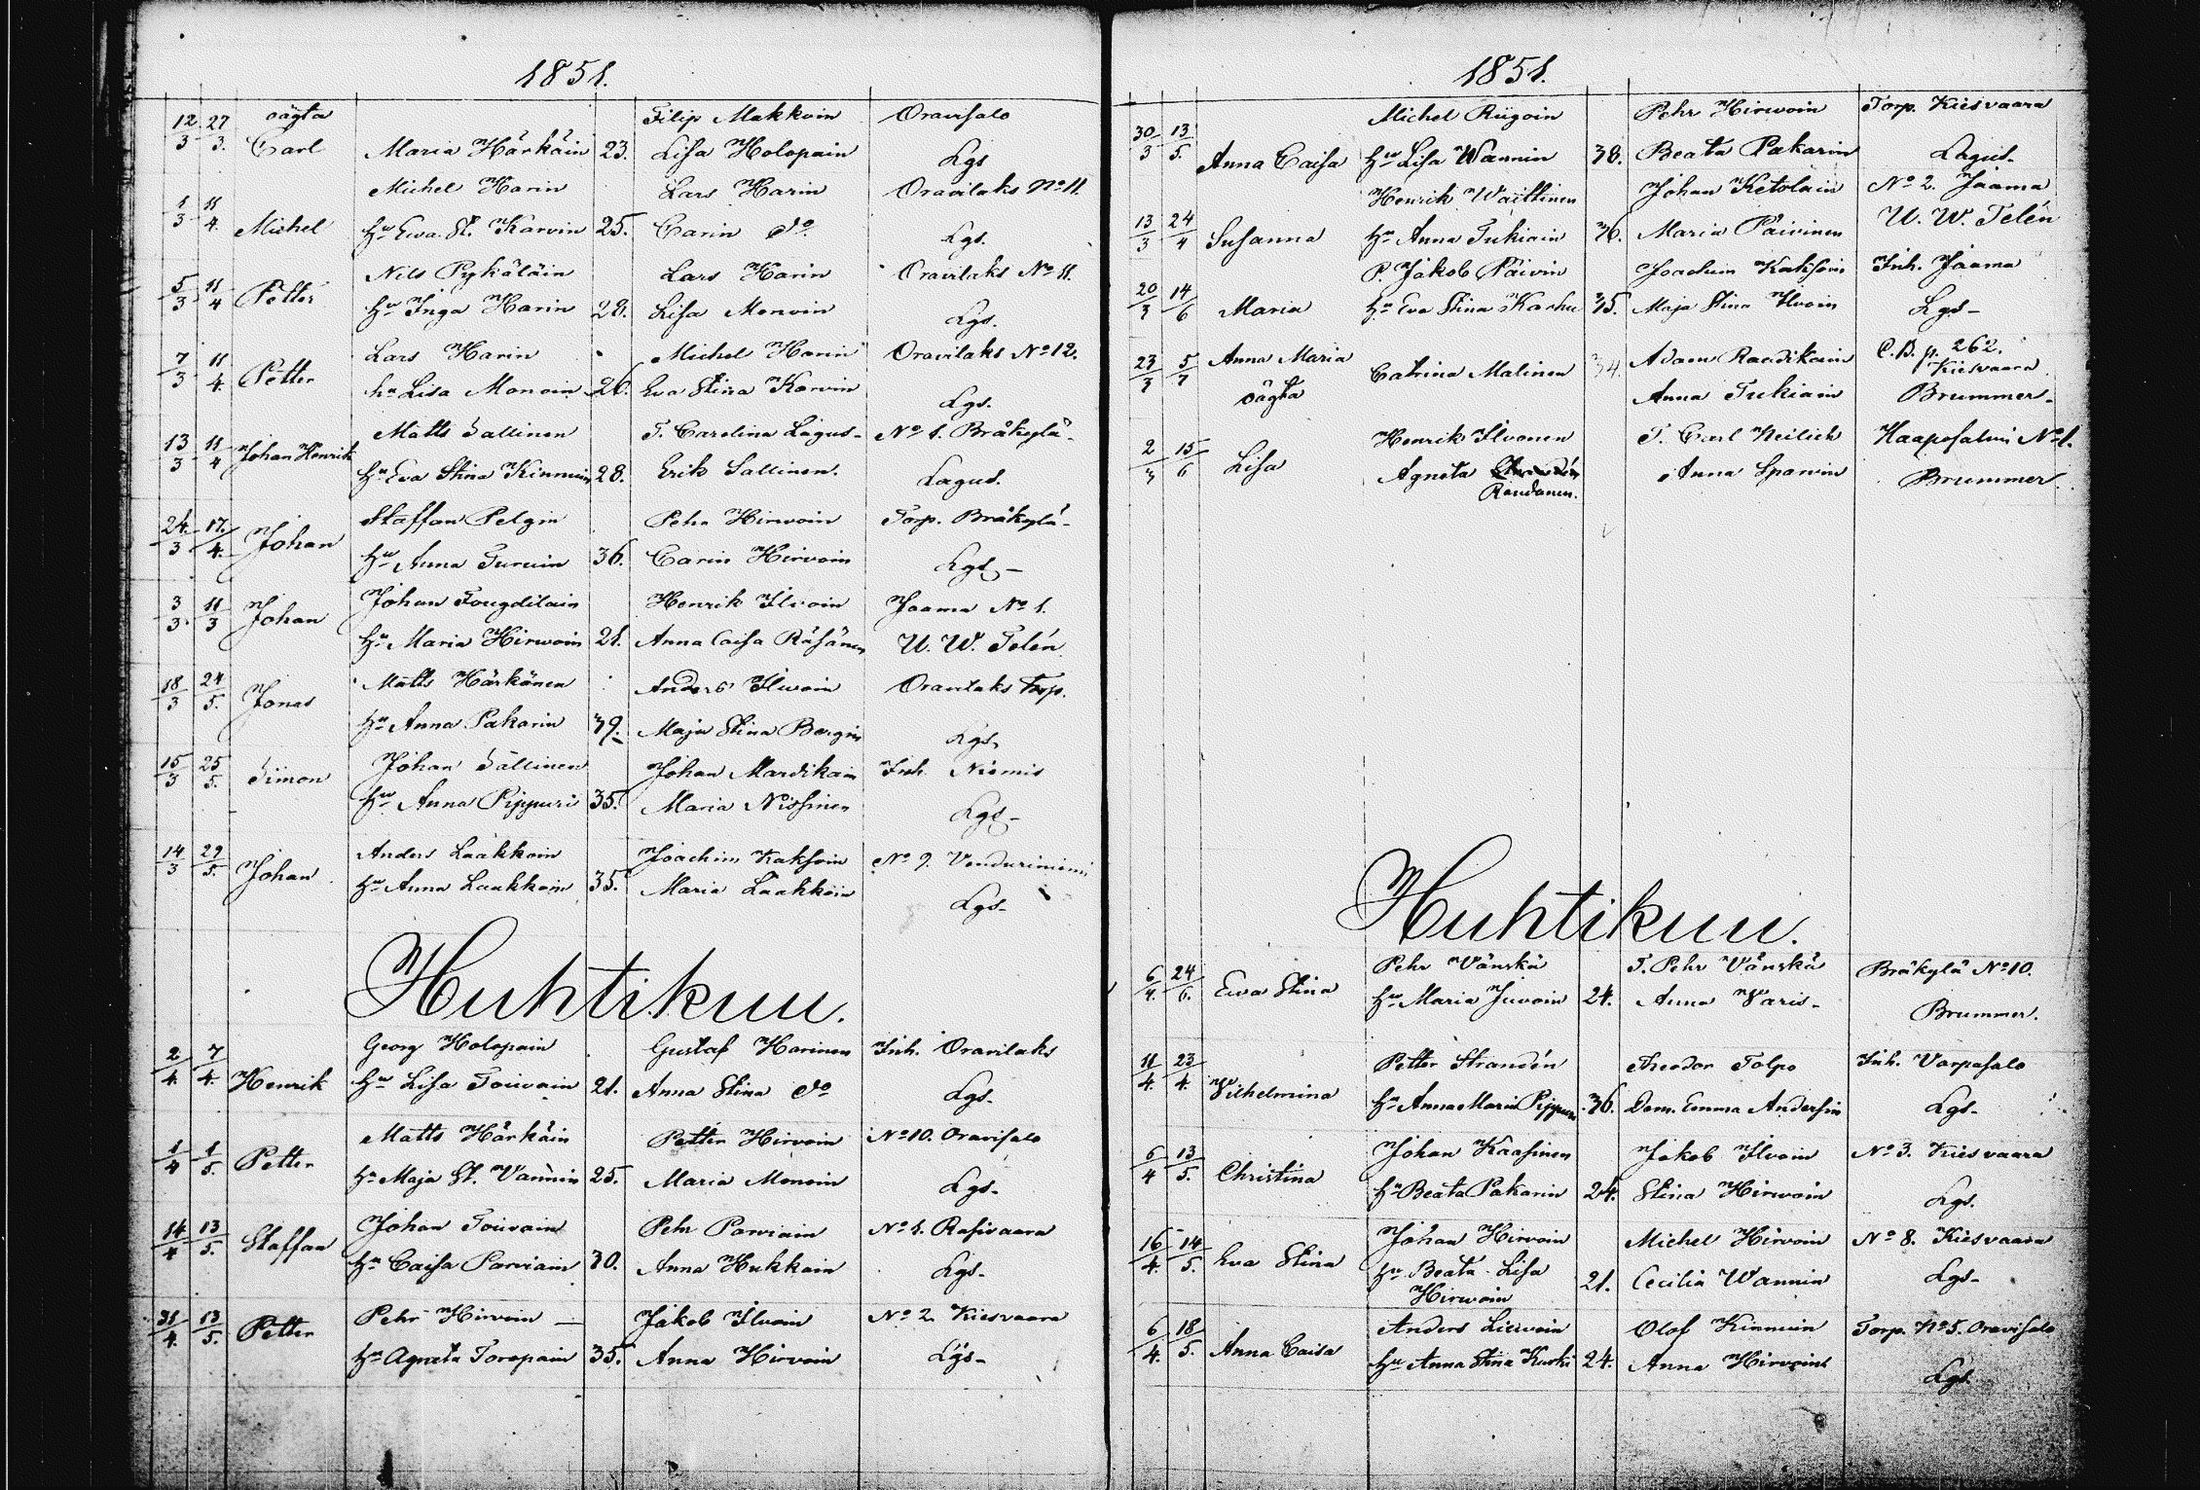 1851.
oägta Filip Makkoin Oravisalo
12/3 27/3. Carl Maria Härkäin 23. Lisa Holopain Lgs
Michel Harin Lars Harin Oravilaks No 11.
1/3 11/4. Michel Hu Ewa St. Karvin 25. Carin do Lgs.
Nils Pykäläin Lars Harin Oravilaks No 11.
5/3 11/4 Petter Hu Inga Harin 28. Lisa Monoin Lgs.
Lars Harin Michel Harin Oravilaks No 12.
7/3 11/4. Petter hu Lisa Monoin 26. Eva Stina Karvin Lgs.
Matts Sallinen T. Carolina Lagus No 1. Bräkylä
13/3 11/4 Johan Henrik Hu Eva Stina Kinnuin 28. Erik Sallinen. Lagus.
Staffan Pelgin Pehr Hirvoin Torp. Bräkylä
24/3 17/4. Johan Hu Anna Turuin 36. Carin Hirvoin Lgs
Johan Tougdilain Henrik Ilvoin Jaama No 1.
3/3 11/3 Johan Hu Maria Hirwoin 21. Anna Caisa Räsänen U. W. Telén
Matts Härkänen Anders Ilwoin Oravilaks Torp.
18/3 24/5. Jonas Hu Anna Pakarin 39. Maja Stina Bergin Lgs
Johan Sällinen Johan Mardikain Inh. Niemis
15/3 25/5. Simon Hu Anna Pippuri 35. Maria Nissinen Lgs
Anders Laakkoin Joachim Kaksoin No 9. Vonduriniemi
14/3 29/5. Johan Hu Anna Laakkoin 35. Maria Laakkoin Lgs
Huhtikuu.
Georg Holopain Gustaf Harinen Inh. Oravilaks
2/4. 7/4. Henrik Hu Lisa Toivain 21. Anna Stina do Lgs.
Matts Härkäin Petter Hirvoin No 10. Oravisalo
1/4 1/5. Petter Hu Maja St. Vännin 25. Maria Monoin Lgs.
Johan Toivain Pehr Parviain No 1. Rasivaara
14/4 13/5. Staffan Hu Caisa Parviain 30. Anna Hukkain Lgs.
Pehr Hirvoin Jakob Ilvoin No 2. Kiesvaara
31/4. 13/5. Petter Hu Agneta Toropain 35. Anna Hirvoin Lgs
1851.
Michel Riigoin Pehr Hirwoin Torp. Kiesvaara
30/3 13/5. Anna Caisa Hu Lisa Wannin 38. Beata Pakarin Lagus.
Henrik Waittinen Johan Ketolain No 2. Jaama
13/3 24/4 Susanna Hu Anna Tukiain 36. Maria Päivinen U. W. Telén
P. Jakob Päivin Joachim Kaksoin Inh. Jaama
20/3 14/6 Maria Hu Eva Stina Karhu 35. Maja Stina Ilvoin Lgs
23/3 5/7 Anna Maria Catrina Malinen 34. Adam Raadikain C.B. p. 262. Kiesvaara
oägta Anna Tukiain Brummer
Henrik Ilvonen T. Carl Neilick Haapasalmi No 1.
2/3 15/6 Lisa Agneta
Randanen. Anna Sparvin Brummer
Huhtikuu.
Pehr Vänskä T. Pehr Vänskä Bräkylä No 10.
6/4. 24/6. Ewa Stina Hu Maria Juvoin 24. Anna Varis Brummer.
Petter Strandén Theodor Tolpo Inh. Varpasalo
11/4. 23/4. Vilhelmina Hu Anna Maria Pippuri 36. Dem. Emma Andersin Lgs.
Johan Kaasinen Jakob Ilvoin No 3. Kiesvaara
6/4 13/5. Christina Hu Beata Pakarin 24. Stina Hirwoin Lgs.
Johan Hirvoin Michel Hirvoin No 8. Kiesvaara
16/4. 14/5. Eva Stina Hu Beata Lisa 21. Cecilia Wannin Lgs
Hirwoin
Anders Lievoin Olof Kinnuin Torp. No 5. Oravisalo
6/4. 18/5. Anna Caisa Hu Anna Stina Kurki 24. Anna Hirvoin Lgs.